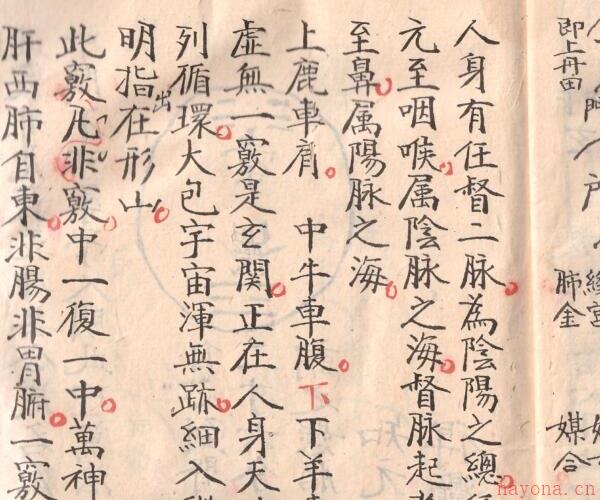 即上丹田
肺金
媒合
人身有任督二脈為陰陽之總
元至咽喉属陰脈之海督脈起
至鼻属陽脈之海
上鹿車肩 中牛車腹 下下羊
虛無一竅是玄關正在人身天
列循環大包宇宙渾無跡細入
明指出在形山
此竅凡非竅中一復一中萬神
肝西肺自東非腸非胃腑一竅
hayona.cn